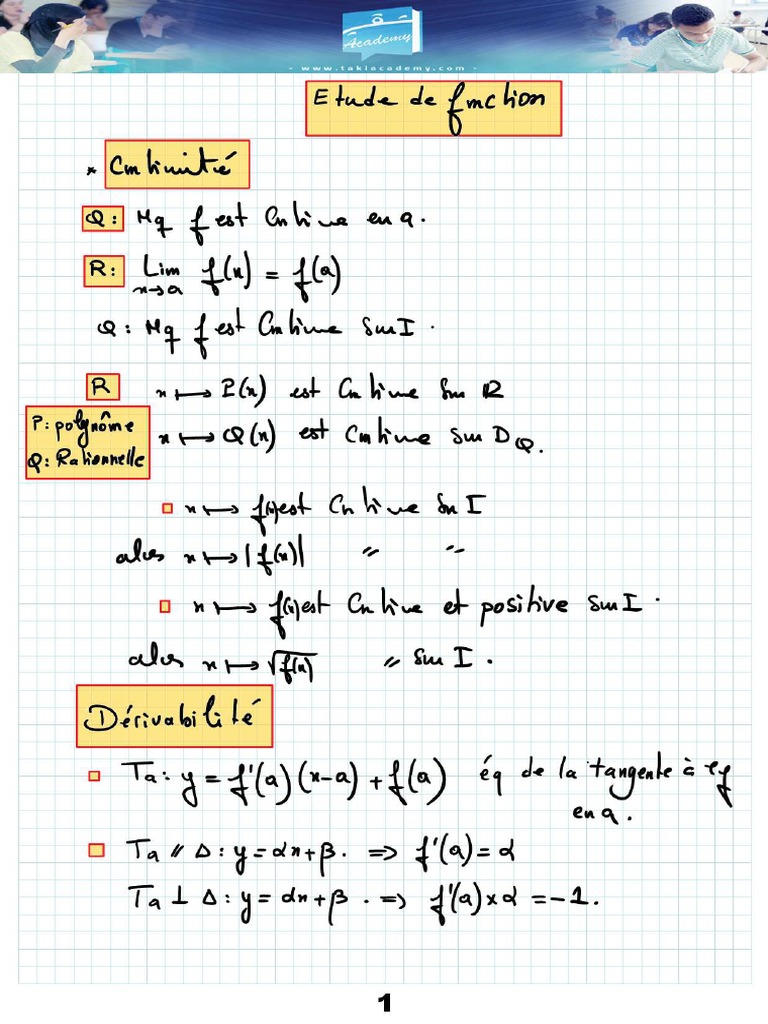 Academy
- www.takiacademy.com -
Etude de fonction
* Continuité
Q: Mq f est Continue en a.
R: Lim f(x) = f(a)
x→a
Q: Mq f est Continue sur I.
R x ⟼ P(x) est Continue sur IR
P: polynôme
Q: Rationnelle
x ⟼ Q(x) est Continue sur D_Q.
▫ x ⟼ f(x) est Continue sur I
alors x ⟼ |f(x)| " "
▫ x ⟼ f(x) est Continue et positive sur I.
alors x ⟼ √f(x) " sur I.
Dérivabilité
▫ Ta: y = f'(a)(x-a) + f(a) éq de la tangente à Cf
en a.
▫ Ta // Δ: y = αx+β. ⇒ f'(a) = α
Ta ⊥ Δ: y = αx+β. ⇒ f'(a) × α = -1.
1